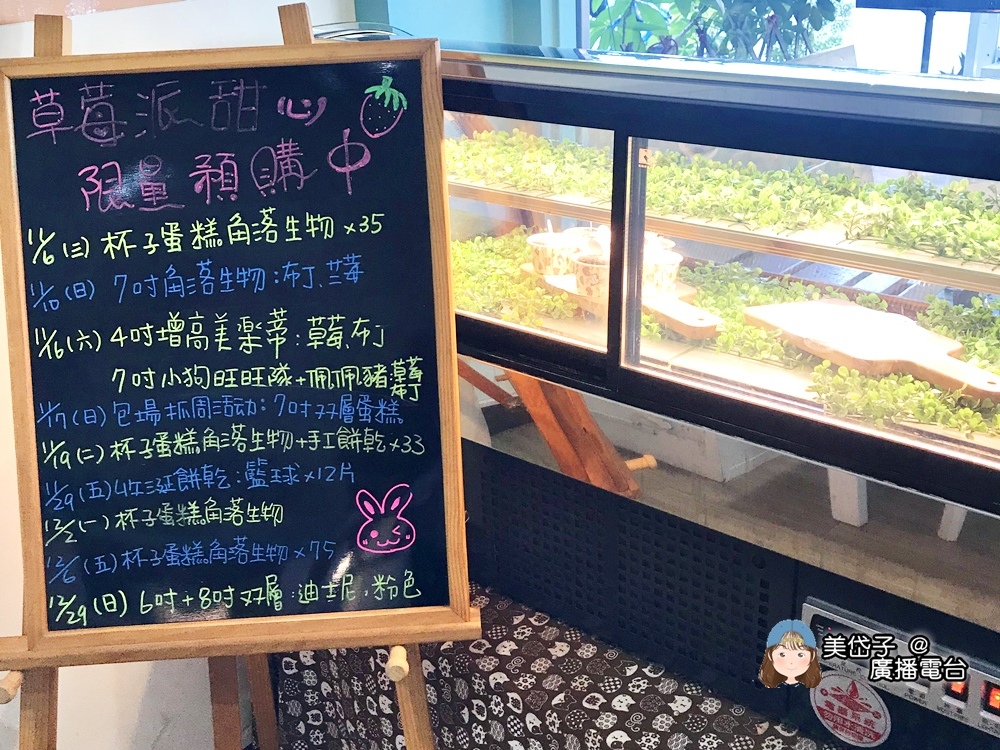 草莓派甜心
限量預購中
11/6(三) 杯子蛋糕角落生物×35
11/10(日) 7吋角落生物:布丁、草莓
11/16(六) 4吋增高美樂蒂:草莓、布丁
7吋小狗旺旺隊+佩佩豬 草莓布丁
11/17(日) 包場抓周活动:7吋双層蛋糕
11/19(二) 杯子蛋糕角落生物+手工餅乾×33
11/29(五) 收涎餅乾:籃球×12片
12/2(一) 杯子蛋糕角落生物
12/6(五) 杯子蛋糕角落生物×75
12/29(日) 6吋+8吋双層:迪士尼.粉色
美岱子@
廣播電台